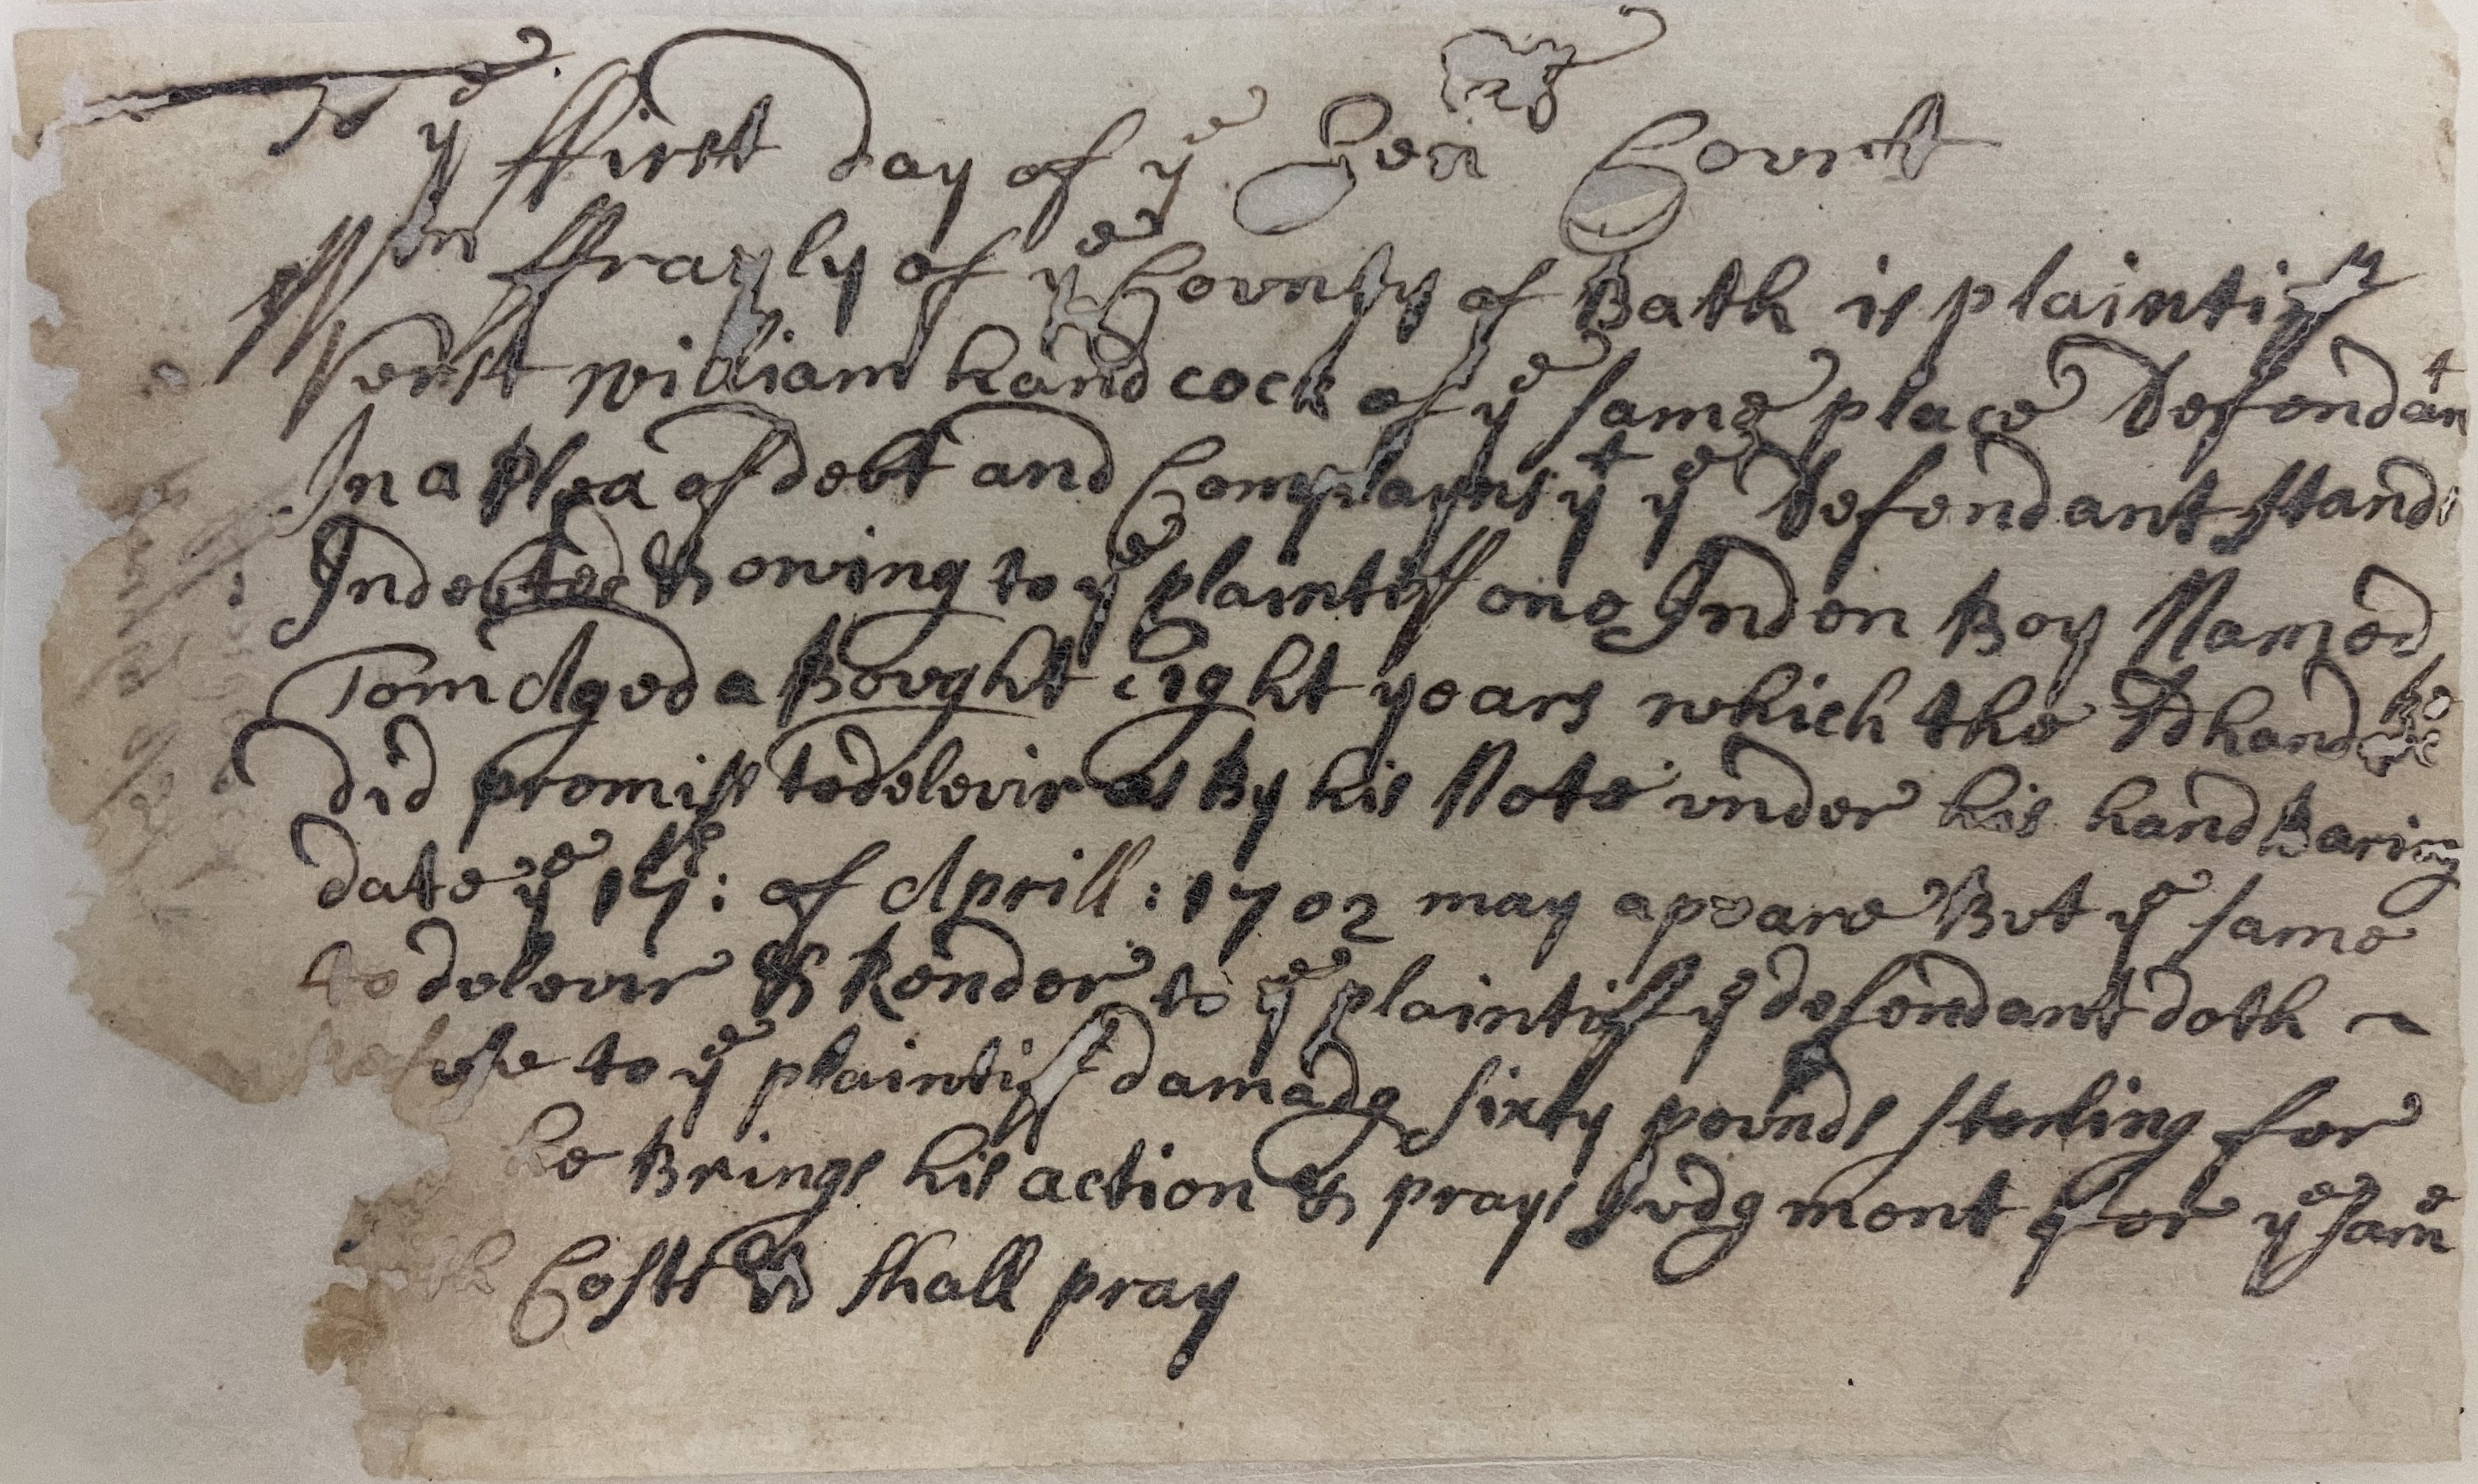 To ye ffirst day of ye Gen Court
Wm ffrayly of ye County of Bath is plaintiff
Verst william handcock of ye same place Defendant
In a Plea of debt and Complayns yt ye Defendant stands
Indebted & owing to ye plaintiff one Inden Boy Named
Tom Aged a Bought Eight years which the sd hand
did promiss to delevir as By his Note under his hand Baring
date ye 17: of Aprill: 1702 may apeare But ye same
to delevir & Render to ye plaintiff ye defendant doth ~
Refuse to ye plaintiff damadg sixty pounds sterling for
he Brings his action & prays Judgment for ye same
Costs & shall pray